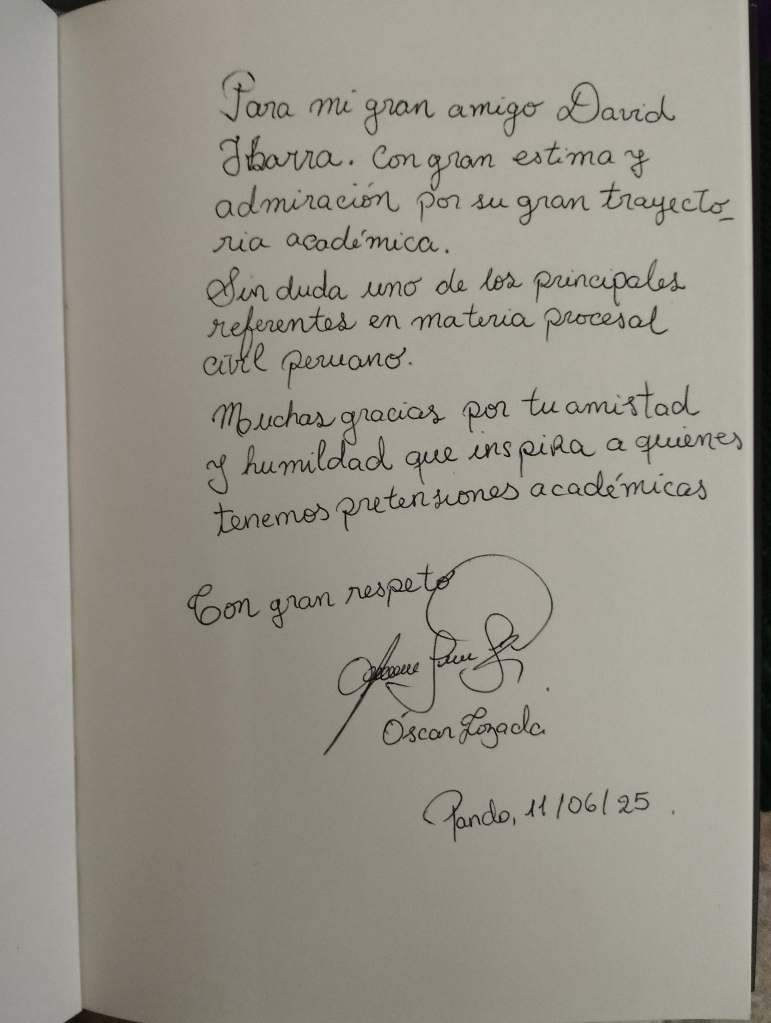 Para mi gran amigo David
Ibarra. Con gran estima y
admiración por su gran trayecto_
ria académica.
Sin duda uno de los principales
referentes en materia procesal
civil peruano.
Muchas gracias por tu amistad
y humildad que inspira a quienes
tenemos pretensiones académicas
Con gran respeto
Óscar Lozada
Pando, 11/06/25.